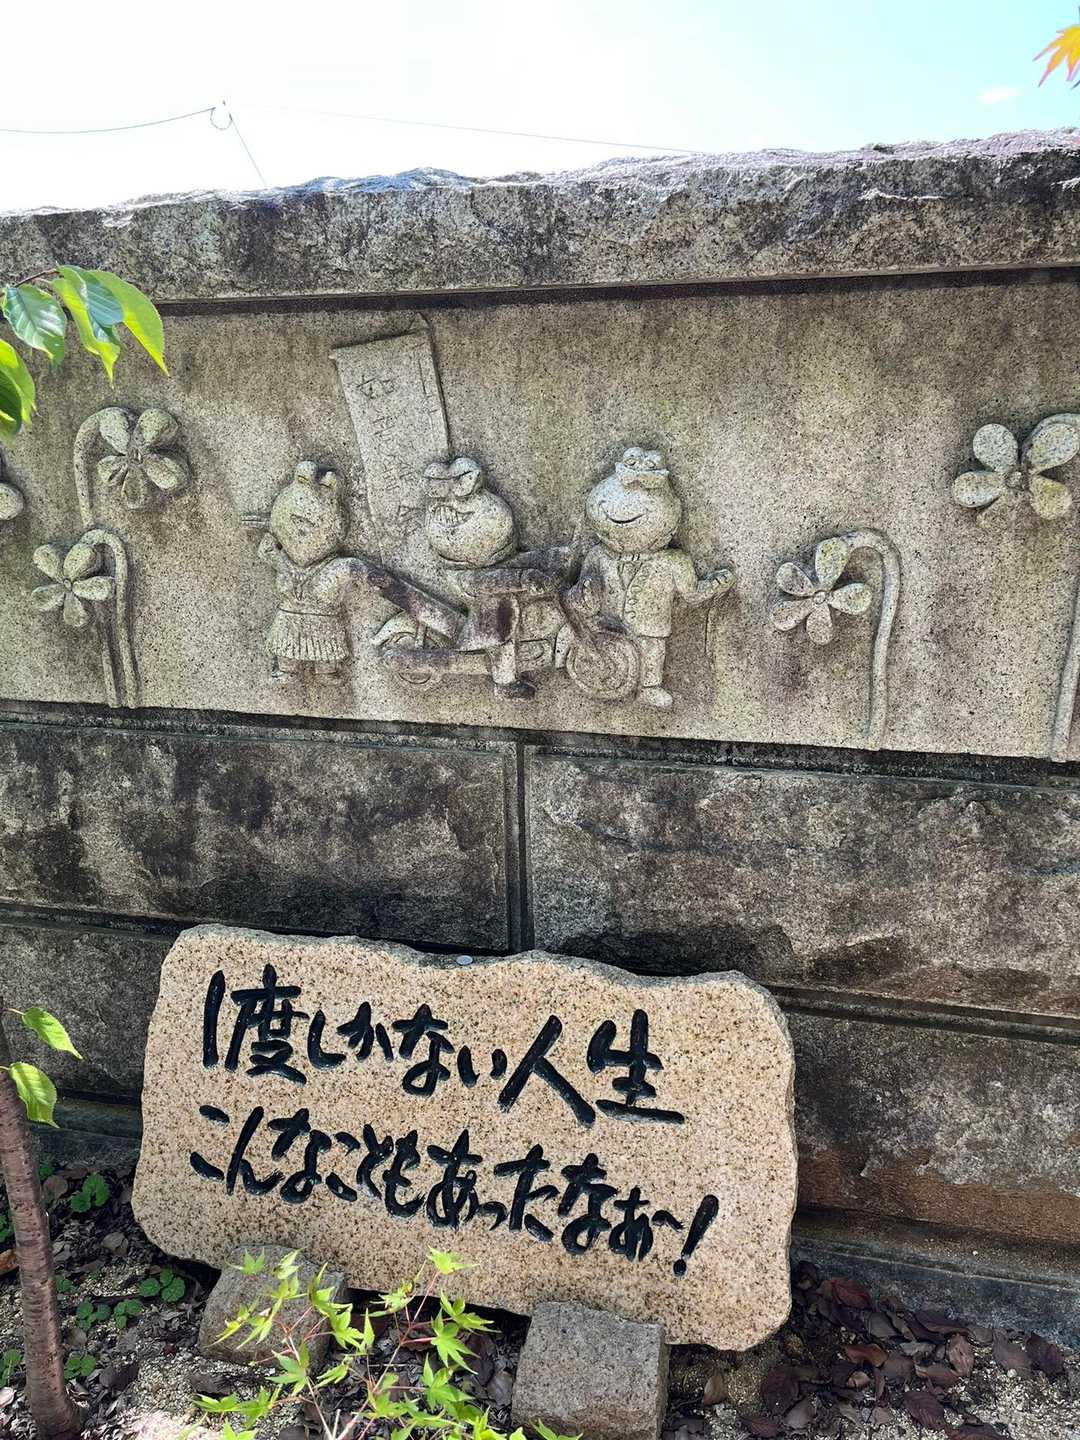 1度しかない人生
こんなこともあったなぁ〜！